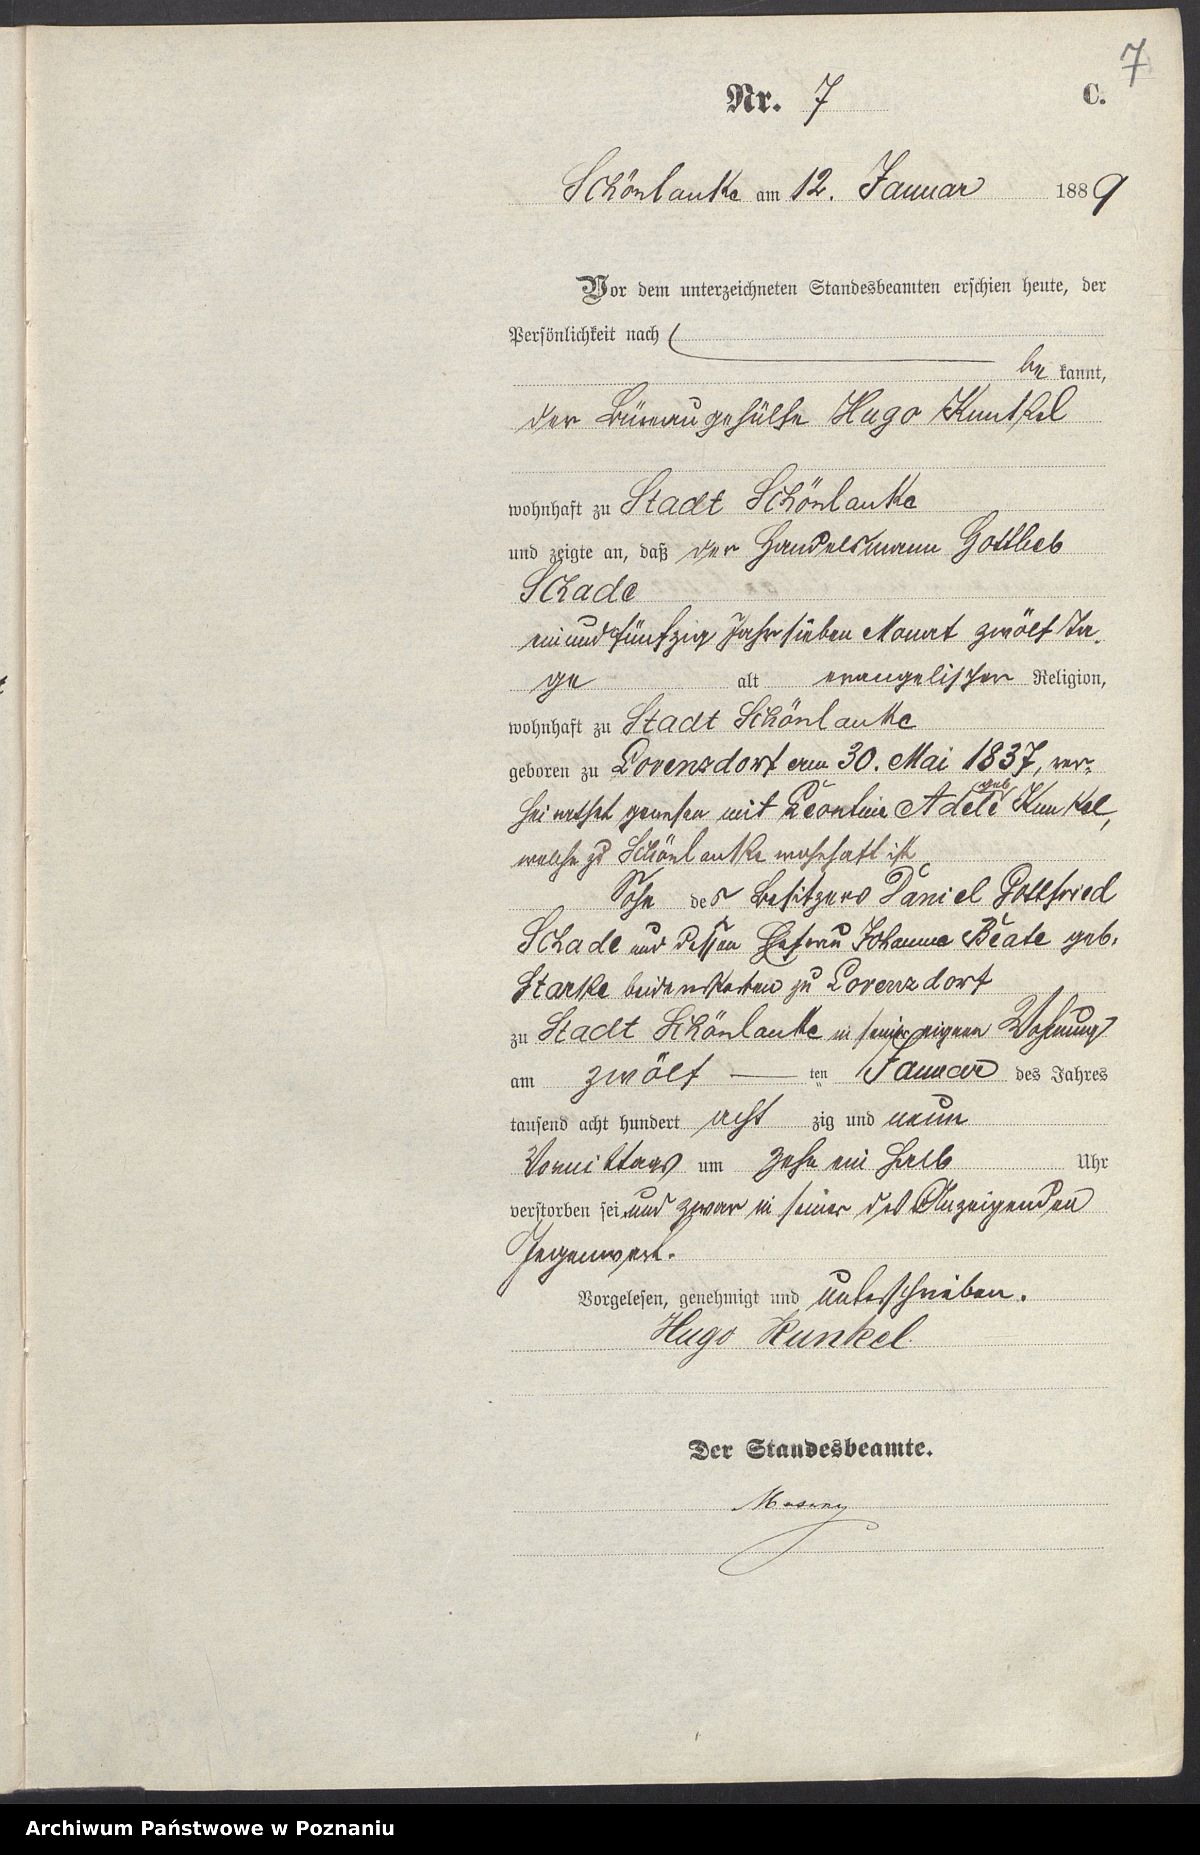 7
Nr. 7 C.
Schönlanke am 12. Januar 1889
Vor dem unterzeichneten Standesbeamten erschien heute, der
Persönlichkeit nach
be kannt,
der Büreaugehülfe Hugo Kunkel
wohnhaft zu Stadt Schönlanke
und zeigte an, daß der Handelsmann Gottlieb
Schade
einundfünfzig Jahr sieben Monat zwölf Ta-
ge alt evangelischer Religion,
wohnhaft zu Stadt Schönlanke
geboren zu Lorenzdorf am 30. Mai 1837, ver-
heirathet gewesen mit Leontine Adele geb Kunkel,
welche zu Schönlanke wohnhaft ist
Sohn des Besitzers Daniel Gottfried
Schade und dessen Ehefrau Johanne Beate geb.
Starke beide verstorben zu Lorenzdorf
zu Stadt Schönlanke in seiner eigenen Wohnung
am zwölf ten Januar des Jahres
tausend acht hundert acht zig und neun
Vormittags um zehn ein halb Uhr
verstorben sei, und zwar in seiner des Anzeigenden
Gegenwart.
Vorgelesen, genehmigt und unterschrieben.
Hugo Kunkel
Der Standesbeamte.
Archiwum Państwowe w Poznaniu